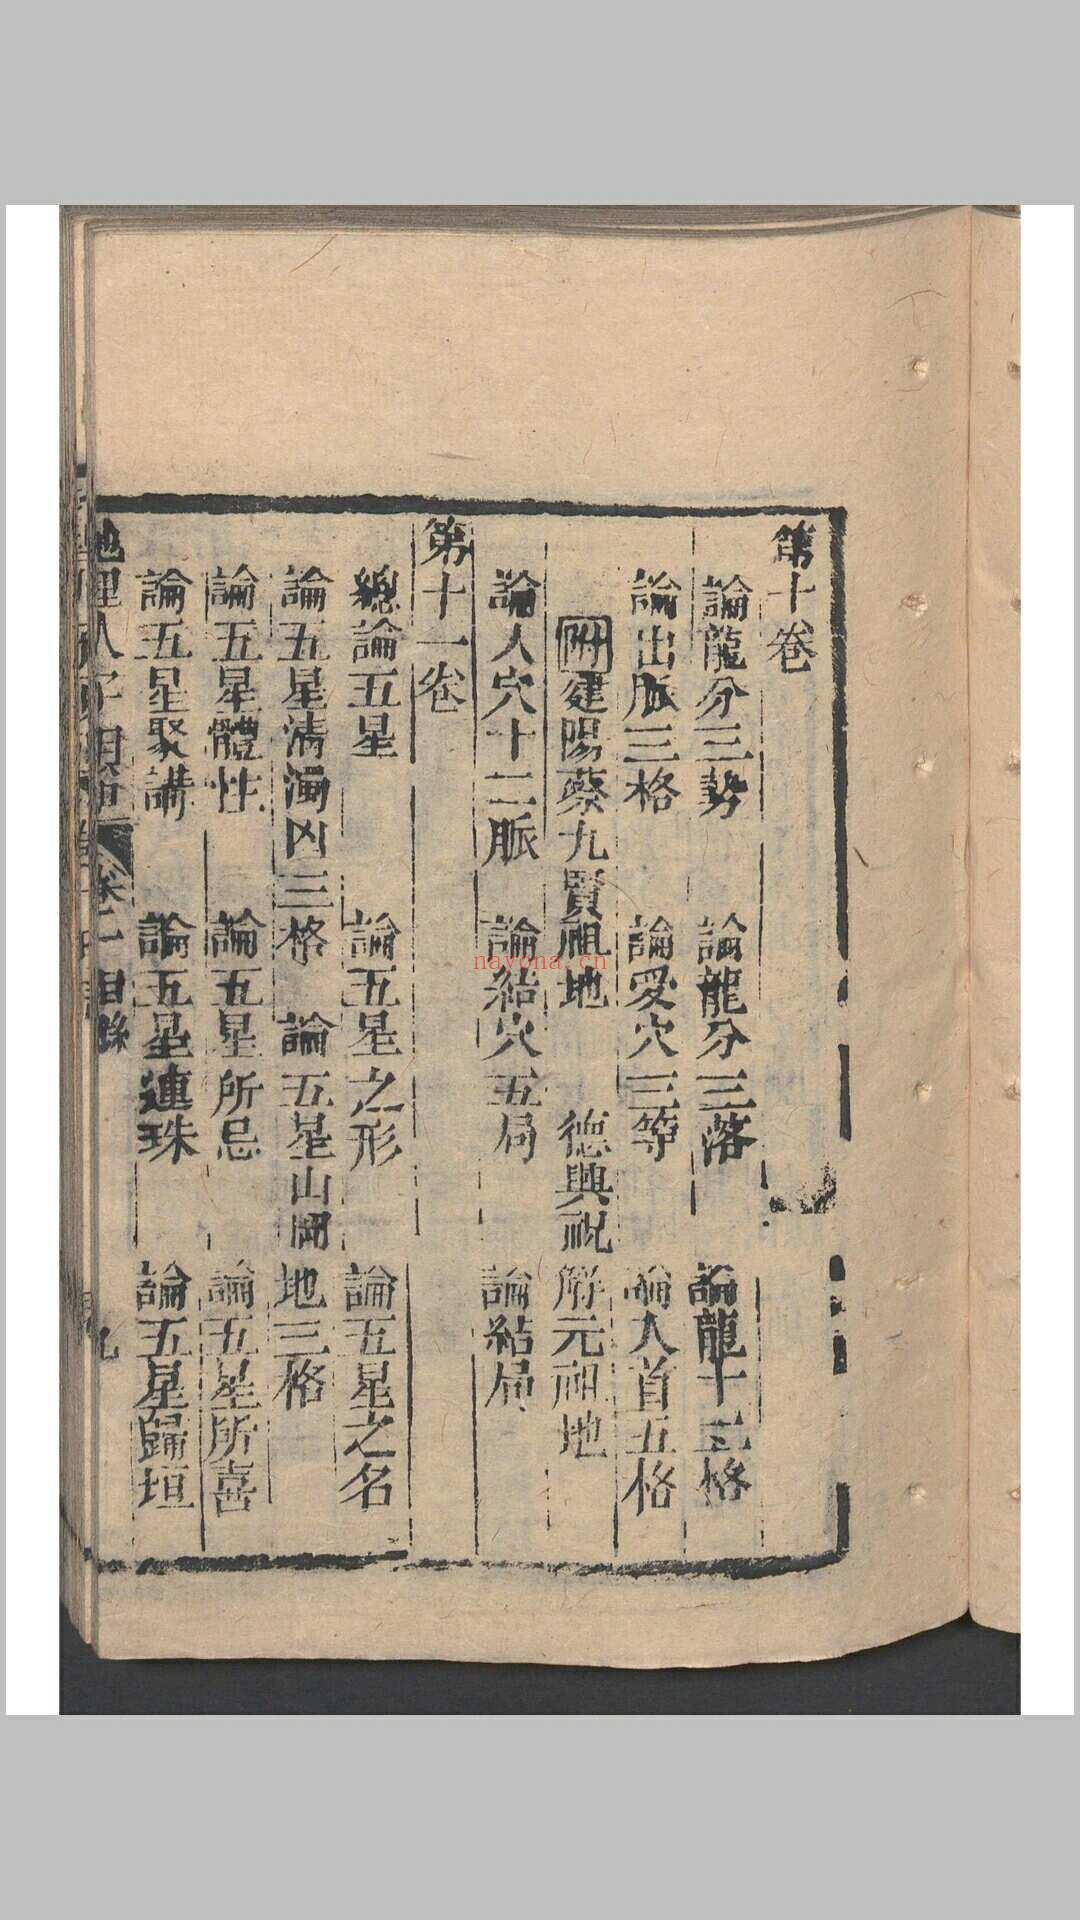 第十卷
論龍分三勢 論龍分三落 論龍十二格
論出脈三格 論受穴三等 論入首五格
附建陽蔡九賢祖地 德興祝解元祖地
論入穴十二脈 論結穴五局 論結局
第十一卷
總論五星 論五星之形 論五星之名
論五星清濁凶三格 論五星山岡地三格
論五星體性 論五星所忌 論五星所喜
論五星聚講 論五星連珠 論五星歸垣
地理人子須 卷一目錄 九
nayona.cn